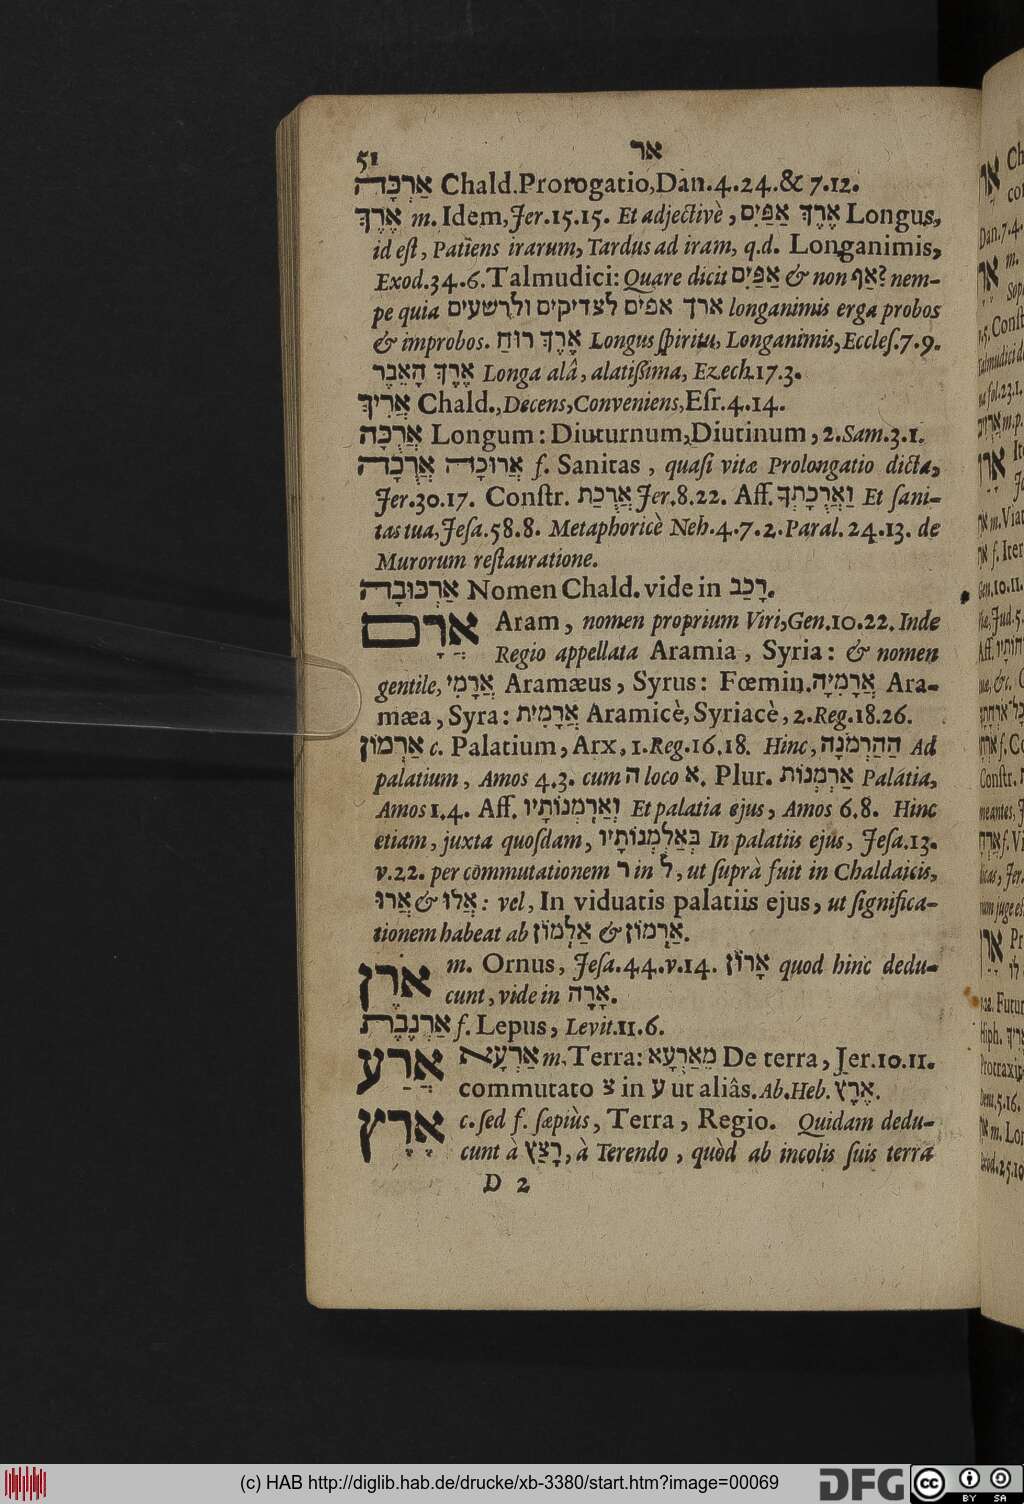 51 אר
אַרְכָּה Chald. Prorogatio, Dan. 4. 24. & 7. 12.
אֶרֶךְ m. Idem, Jer. 15. 15. Et adjectivè, אֶרֶךְ אַפַּיִם Longus,
id eſt, Patiens irarum, Tardus ad iram, q.d. Longanimis,
Exod. 34. 6. Talmudici: Quare dicit אַפַּיִם & non אַף? nem-
pe quia ארך אפים לצדיקים ולרשעים longanimis erga probos
& improbos. אֶרֶךְ רוּחַ Longus ſpiritu, Longanimis, Eccleſ. 7. 9.
אֶרֶךְ הָאֵבֶר Longa alâ, alatiſſima, Ezech. 17. 3.
אֲרִיךְ Chald., Decens, Conveniens, Eſr. 4. 14.
אֲרֻכָּה Longum: Diuturnum, Diutinum, 2. Sam. 3. 1.
אֲרוּכָה אֲרֻכָה f. Sanitas, quaſi vitæ Prolongatio dicta,
Jer. 30. 17. Conſtr. אֲרֻכַת Jer. 8. 22. Aff. וַאֲרֻכָתְךָ Et ſani-
tas tua, Jeſa. 58. 8. Metaphoricè Neh. 4. 7. 2. Paral. 24. 13. de
Murorum reſtauratione.
אַרְכּוּבָה Nomen Chald. vide in רָכַב.
אֲרָם Aram, nomen proprium Viri, Gen. 10. 22. Inde
Regio appellata Aramia, Syria: & nomen
gentile, אֲרָמִי Aramæus, Syrus: Fœmin. אֲרָמִיָּה Ara-
mæa, Syra: אֲרָמִית Aramicè, Syriacè, 2. Reg. 18. 26.
אַרְמוֹן c. Palatium, Arx, 1. Reg. 16. 18. Hinc, הַהַרְמֹנָה Ad
palatium, Amos 4. 3. cum ה loco א. Plur. אַרְמְנוֹת Palatia,
Amos 1. 4. Aff. וְאַרְמְנוֹתָיו Et palatia ejus, Amos 6. 8. Hinc
etiam, juxta quoſdam, בְּאַלְמְנוֹתָיו In palatiis ejus, Jeſa. 13.
v. 22. per commutationem ר in ל, ut ſuprà fuit in Chaldaicis,
אֲרוּ & אֲלוּ: vel, In viduatis palatiis ejus, ut ſignifica-
tionem habeat ab אַלְמוֹן & אַרְמוֹן.
אֹרֶן m. Ornus, Jeſa. 44. v. 14. אָרוֹן quod hinc dedu-
cunt, vide in אָרָה.
אַרְנֶבֶת f. Lepus, Levit. 11. 6.
אֲרַע אַרְעָא m. Terra: מֵאַרְעָא De terra, Jer. 10. 11.
commutato צ in ע ut aliâs. Ab. Heb. אֶרֶץ.
אֶרֶץ c. ſed f. ſæpiùs, Terra, Regio. Quidam dedu-
cunt à רָצַץ, à Terendo, quòd ab incolis ſuis terra
D 2
(c) HAB http://diglib.hab.de/drucke/xb-3380/start.htm?image=00069
DFG cc BY SA